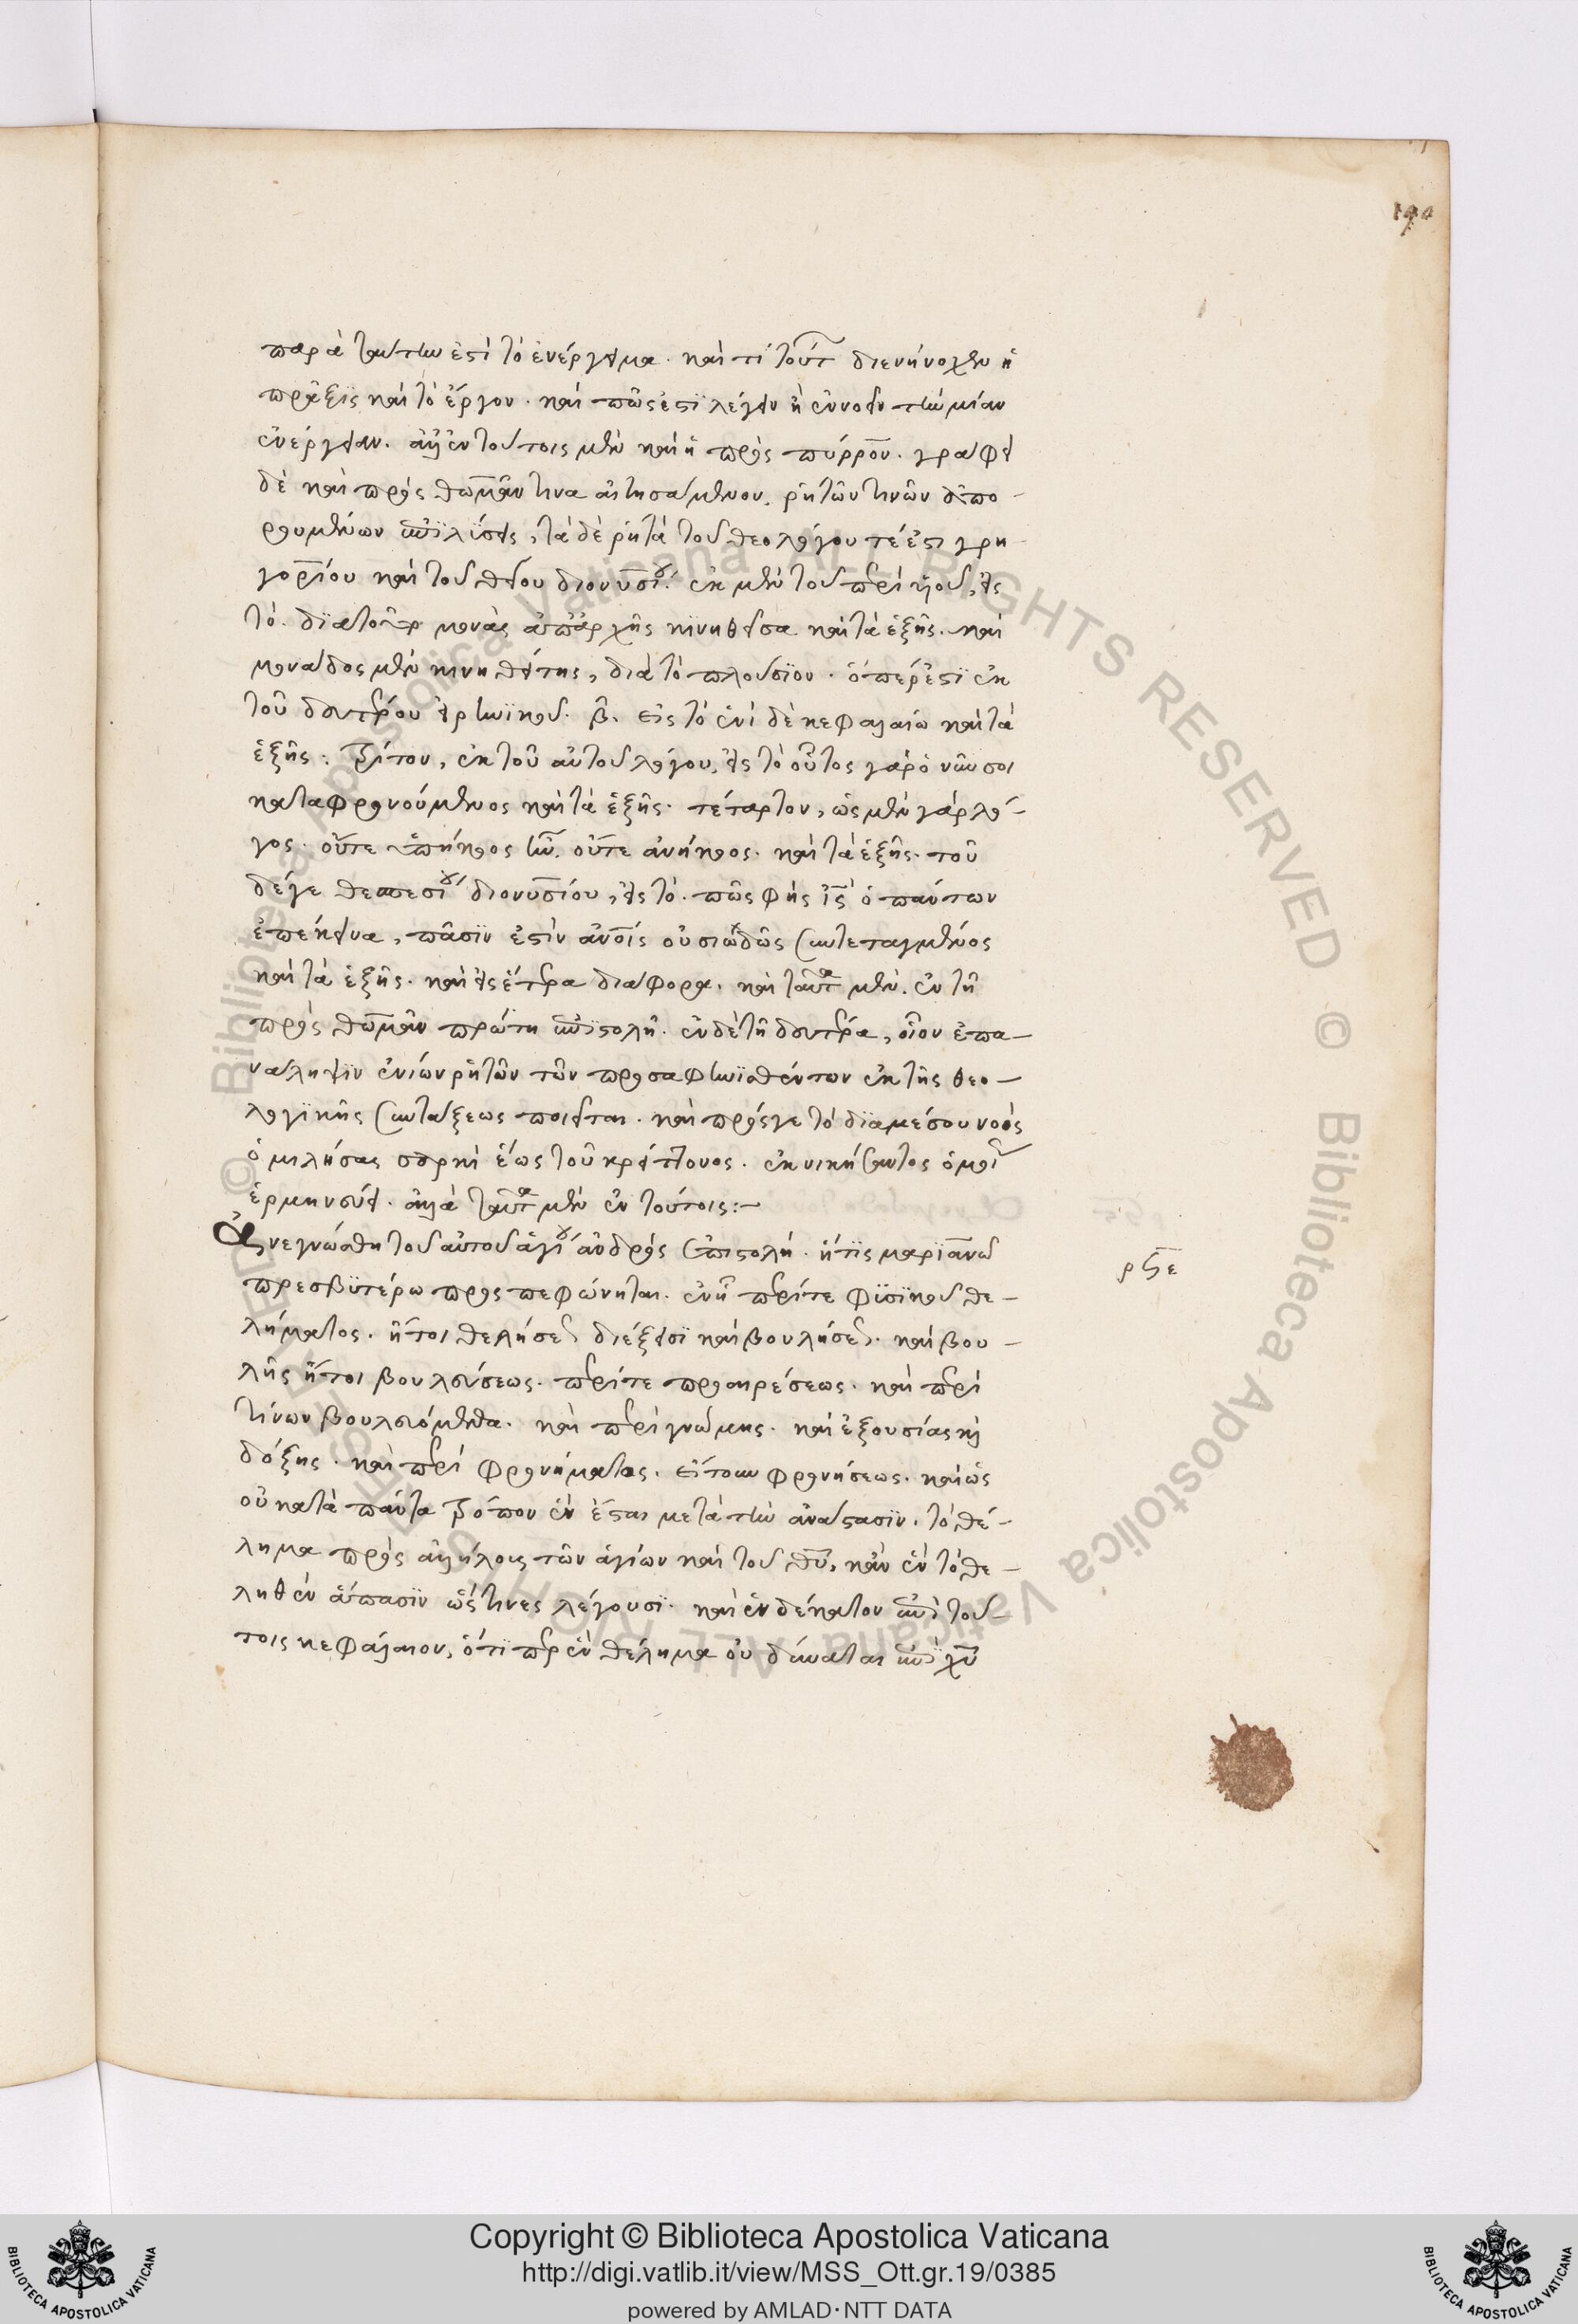 190
παρὰ ταύτην ἐστὶ τὸ ἐνέργημα. καὶ τί τούτ διενήνοχεν ἡ
πρᾶξις καὶ τὸ ἔργον. καὶ πῶς ἐστὶ λέγειν ἢ ἐννοεῖν τὴν μίαν
ἐνέργειαν. ἀλλ' ἐν τούτοις μὲν καὶ ἡ πρὸς πύρρον. γράφει
δὲ καὶ πρὸς θωμᾶν τινα αἰτησάμενον. ῥητῶν τινῶν ἀπο-
ρουμένων ἐπιλύσεις, τὰ δὲ ῥητὰ τοῦ θεολόγου τέ ἐστι γρη
γορίου καὶ τοῦ θείου διονυσίου. ἐκ μὲν τοῦ περὶ υἱοῦ, εἰς
τό. διατοῦτο μονὰς ἀπ' ἀρχῆς κινηθεῖσα καὶ τὰ ἑξῆς. καὶ
μονάδος μὲν κινηθείσης, διὰ τὸ πλούσιον. ὅπερ ἐστὶ ἐκ
τοῦ δευτέρου εἰρηνικοῦ. β. εἰς τὸ ἑνὶ δὲ κεφαλαίω καὶ τὰ
ἑξῆς. τρίτον, ἐκ τοῦ αὐτοῦ λόγου, εἰς τὸ οὗτος γὰρ ὁ νῦν σοι
καταφρονούμενος καὶ τὰ ἑξῆς. τέταρτον, ὡς μὲν γὰρ λό-
γος. οὔτε ὑπήκοος ἦν. οὔτε ἀνήκοος. καὶ τὰ ἑξῆς. τοῦ
δέγε θεσπεσίου διονυσίου, εἰς τό. πῶς φὴς ις ὁ πάντων
ἐπέκεινα, πᾶσιν ἐστὶν ἀνοις οὐσιωδῶς συντεταγμένος
καὶ τὰ ἑξῆς. καὶ εἰς ἕτερα διάφορα. καὶ ταῦτα μὲν. ἐν τῆ
πρὸς θωμᾶν πρώτη ἐπιστολῆ. ἐν δὲ τῆ δευτέρα, οἷον ἐπα-
νάληψιν ἐνίων ῥητῶν τῶν προσαφηνισθέντων ἐκ τῆς θεο-
λογικῆς συντάξεως ποιεῖται. καὶ πρόσγε τὸ διαμέσου νοὸς
ὁμιλήσας σαρκὶ ἕως τοῦ κρείττονος. ἐκνικήσαντος ὁμοῦ
ἑρμηνεύει. ἀλλὰ ταῦτα μὲν ἐν τούτοις:-
Ἀνεγνώσθη τοῦ αὐτοῦ ἁγίου ἀνδρὸς ἐπιστολή. ἥτις μαριανῶ
ρϟε
πρεσβυτέρω προσπεφώνηται. ἐν ἧ περί τε φυσικοῦ θε-
λήματος. ἤτοι θελήσεως διέξεισι καὶ βουλήσεως. καὶ βου-
λῆς ἤτοι βουλεύσεως. περί τε προαιρέσεως. καὶ περὶ
τίνων βουλευόμεθα. καὶ περὶ γνώμης. καὶ ἐξουσίας καὶ
δόξης. καὶ περὶ φρονήματος. εἴτουν φρονήσεως. καὶ ὡς
οὐ κατὰ πάντα τρόπον ἓν ἔσται μετὰ τὴν ἀνάστασιν. τὸ θέ-
λημα πρὸς ἀλλήλοις τῶν ἁγίων καὶ τοῦ θυ, κἂν ἓν τὸ θε-
ληθὲν ἅπασιν ὥς τινες λέγουσι. καὶ ἑνδέκατον ἐπὶ τού-
τοις κεφάλαιον, ὅτι περ ἓν θέλημα οὐ δύναται ἐπὶ χυ
Copyright © Biblioteca Apostolica Vaticana
http://digi.vatlib.it/view/MSS_Ott.gr.19/0385
powered by AMLAD·NTT DATA